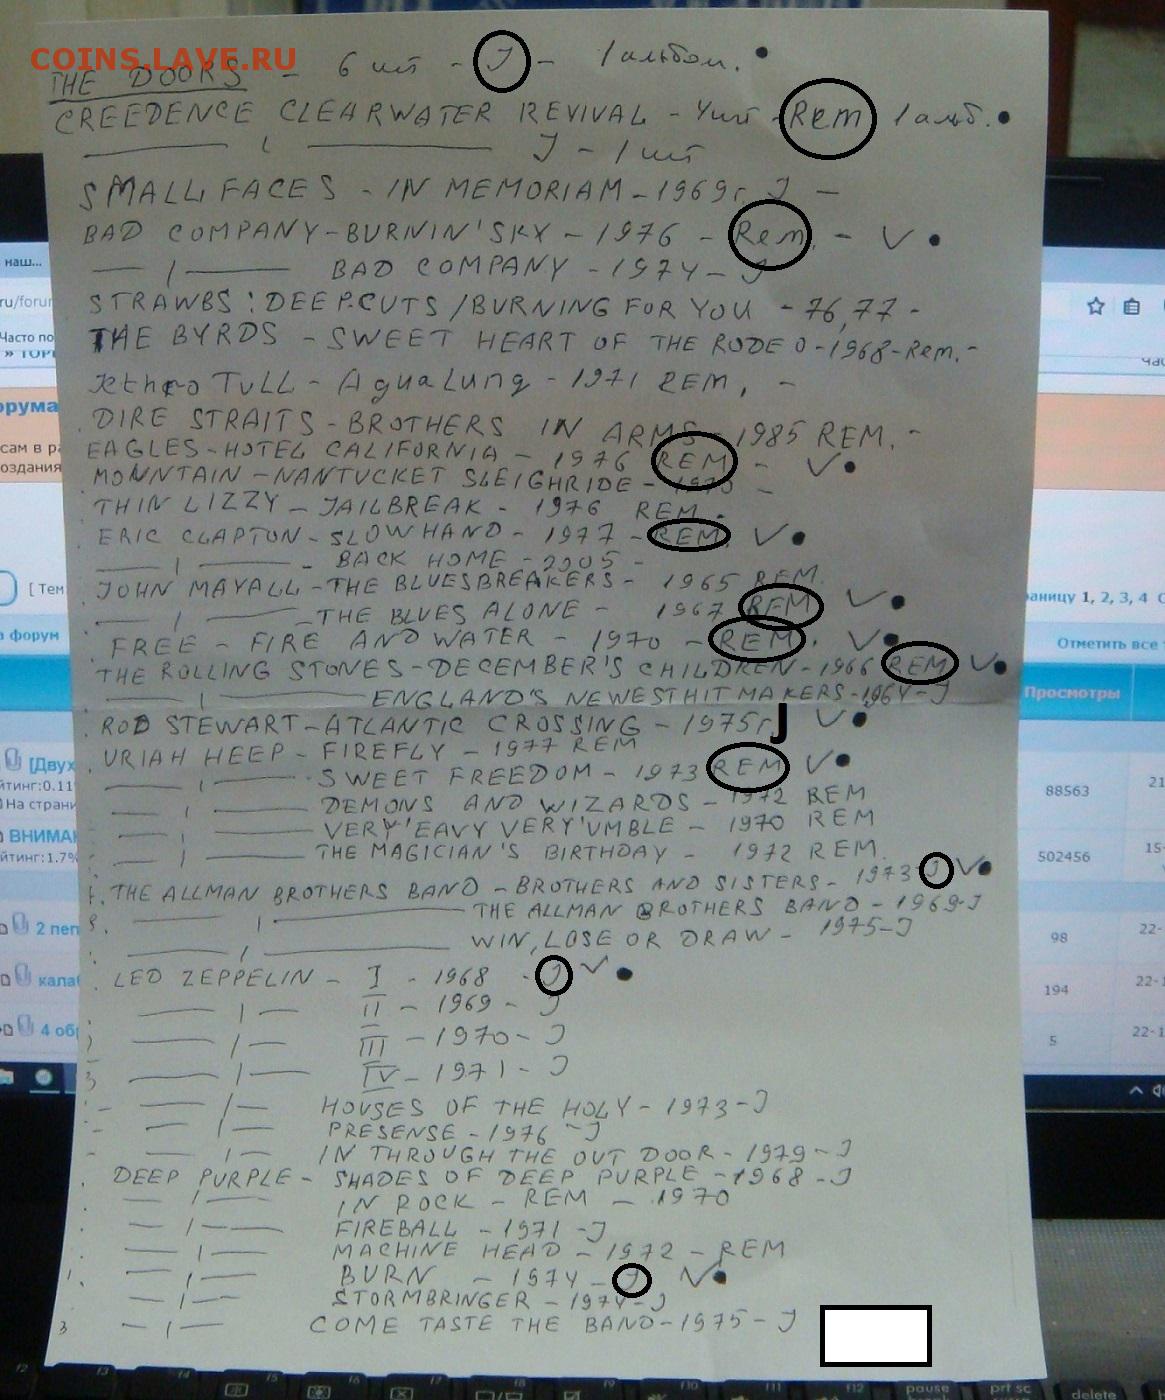 COINS.LAVE.RU
THE DOORS - 6 шт - J - 1 альбом.
CREEDENCE CLEARWATER REVIVAL - 4шт - Rem 1 альб.
— ı — J - 1 шт
SMALL FACES - IN MEMORIAM - 1969г. J -
BAD COMPANY - BURNIN' SKY - 1976 - Rem. - V
— ı — BAD COMPANY - 1974 - J
STRAWBS: DEEP CUTS / BURNING FOR YOU - 76,77 -
THE BYRDS - SWEET HEART OF THE RODEO - 1968 - Rem. -
Jethro Tull - AquaLung - 1971 REM. -
DIRE STRAITS - BROTHERS IN ARMS - 1985 REM. -
EAGLES - HOTEL CALIFORNIA - 1976 REM - V
MONNTAIN - NANTUCKET SLEIGHRIDE - 1970 -
THIN LIZZY - JAILBREAK - 1976 REM.
ERIC CLAPTON - SLOWHAND - 1977 - REM. V
— ı — BACK HOME - 2005 -
JOHN MAYALL - THE BLUESBREAKERS - 1965 REM.
— ı — THE BLUES ALONE - 1967 REM V
FREE - FIRE AND WATER - 1970 - REM. V
THE ROLLING STONES - DECEMBER'S CHILDREN - 1966 REM V
— ı — ENGLAND'S NEWEST HIT MAKERS - 1964 - J
ROD STEWART - ATLANTIC CROSSING - 1975г J V
URIAH HEEP - FIREFLY - 1977 REM
— ı — SWEET FREEDOM - 1973 REM V
— ı — DEMONS AND WIZARDS - 1972 REM
— ı — VERY 'EAVY VERY 'UMBLE - 1970 REM
— ı — THE MAGICIAN'S BIRTHDAY - 1972 REM.
THE ALLMAN BROTHERS BAND - BROTHERS AND SISTERS - 1973 - J V
— ı — THE ALLMAN BROTHERS BAND - 1969 - J
— ı — WIN, LOSE OR DRAW - 1975 - J
LED ZEPPELIN - I - 1968 - J V
— ı — II - 1969 - J
— ı — III - 1970 - J
— ı — IV - 1971 - J
— ı — HOUSES OF THE HOLY - 1973 - J
— ı — PRESENSE - 1976 - J
— ı — IN THROUGH THE OUT DOOR - 1979 - J
DEEP PURPLE - SHADES OF DEEP PURPLE - 1968 - J
— ı — IN ROCK - REM - 1970
— ı — FIREBALL - 1971 - J
— ı — MACHINE HEAD - 1972 - REM
— ı — BURN - 1974 - J V
— ı — STORMBRINGER - 1974 - J
— ı — COME TASTE THE BAND - 1975 - J
наш...
Часто по
орума
сам в ра
создания
[ Тем
форум
[Двух
На страни
ВНИМАН
2 пеп
кала
4 обр
1, 2, 3, 4
Отметить все
Просмотры
88563
502456
98
194
5
pause
prt sc
delete